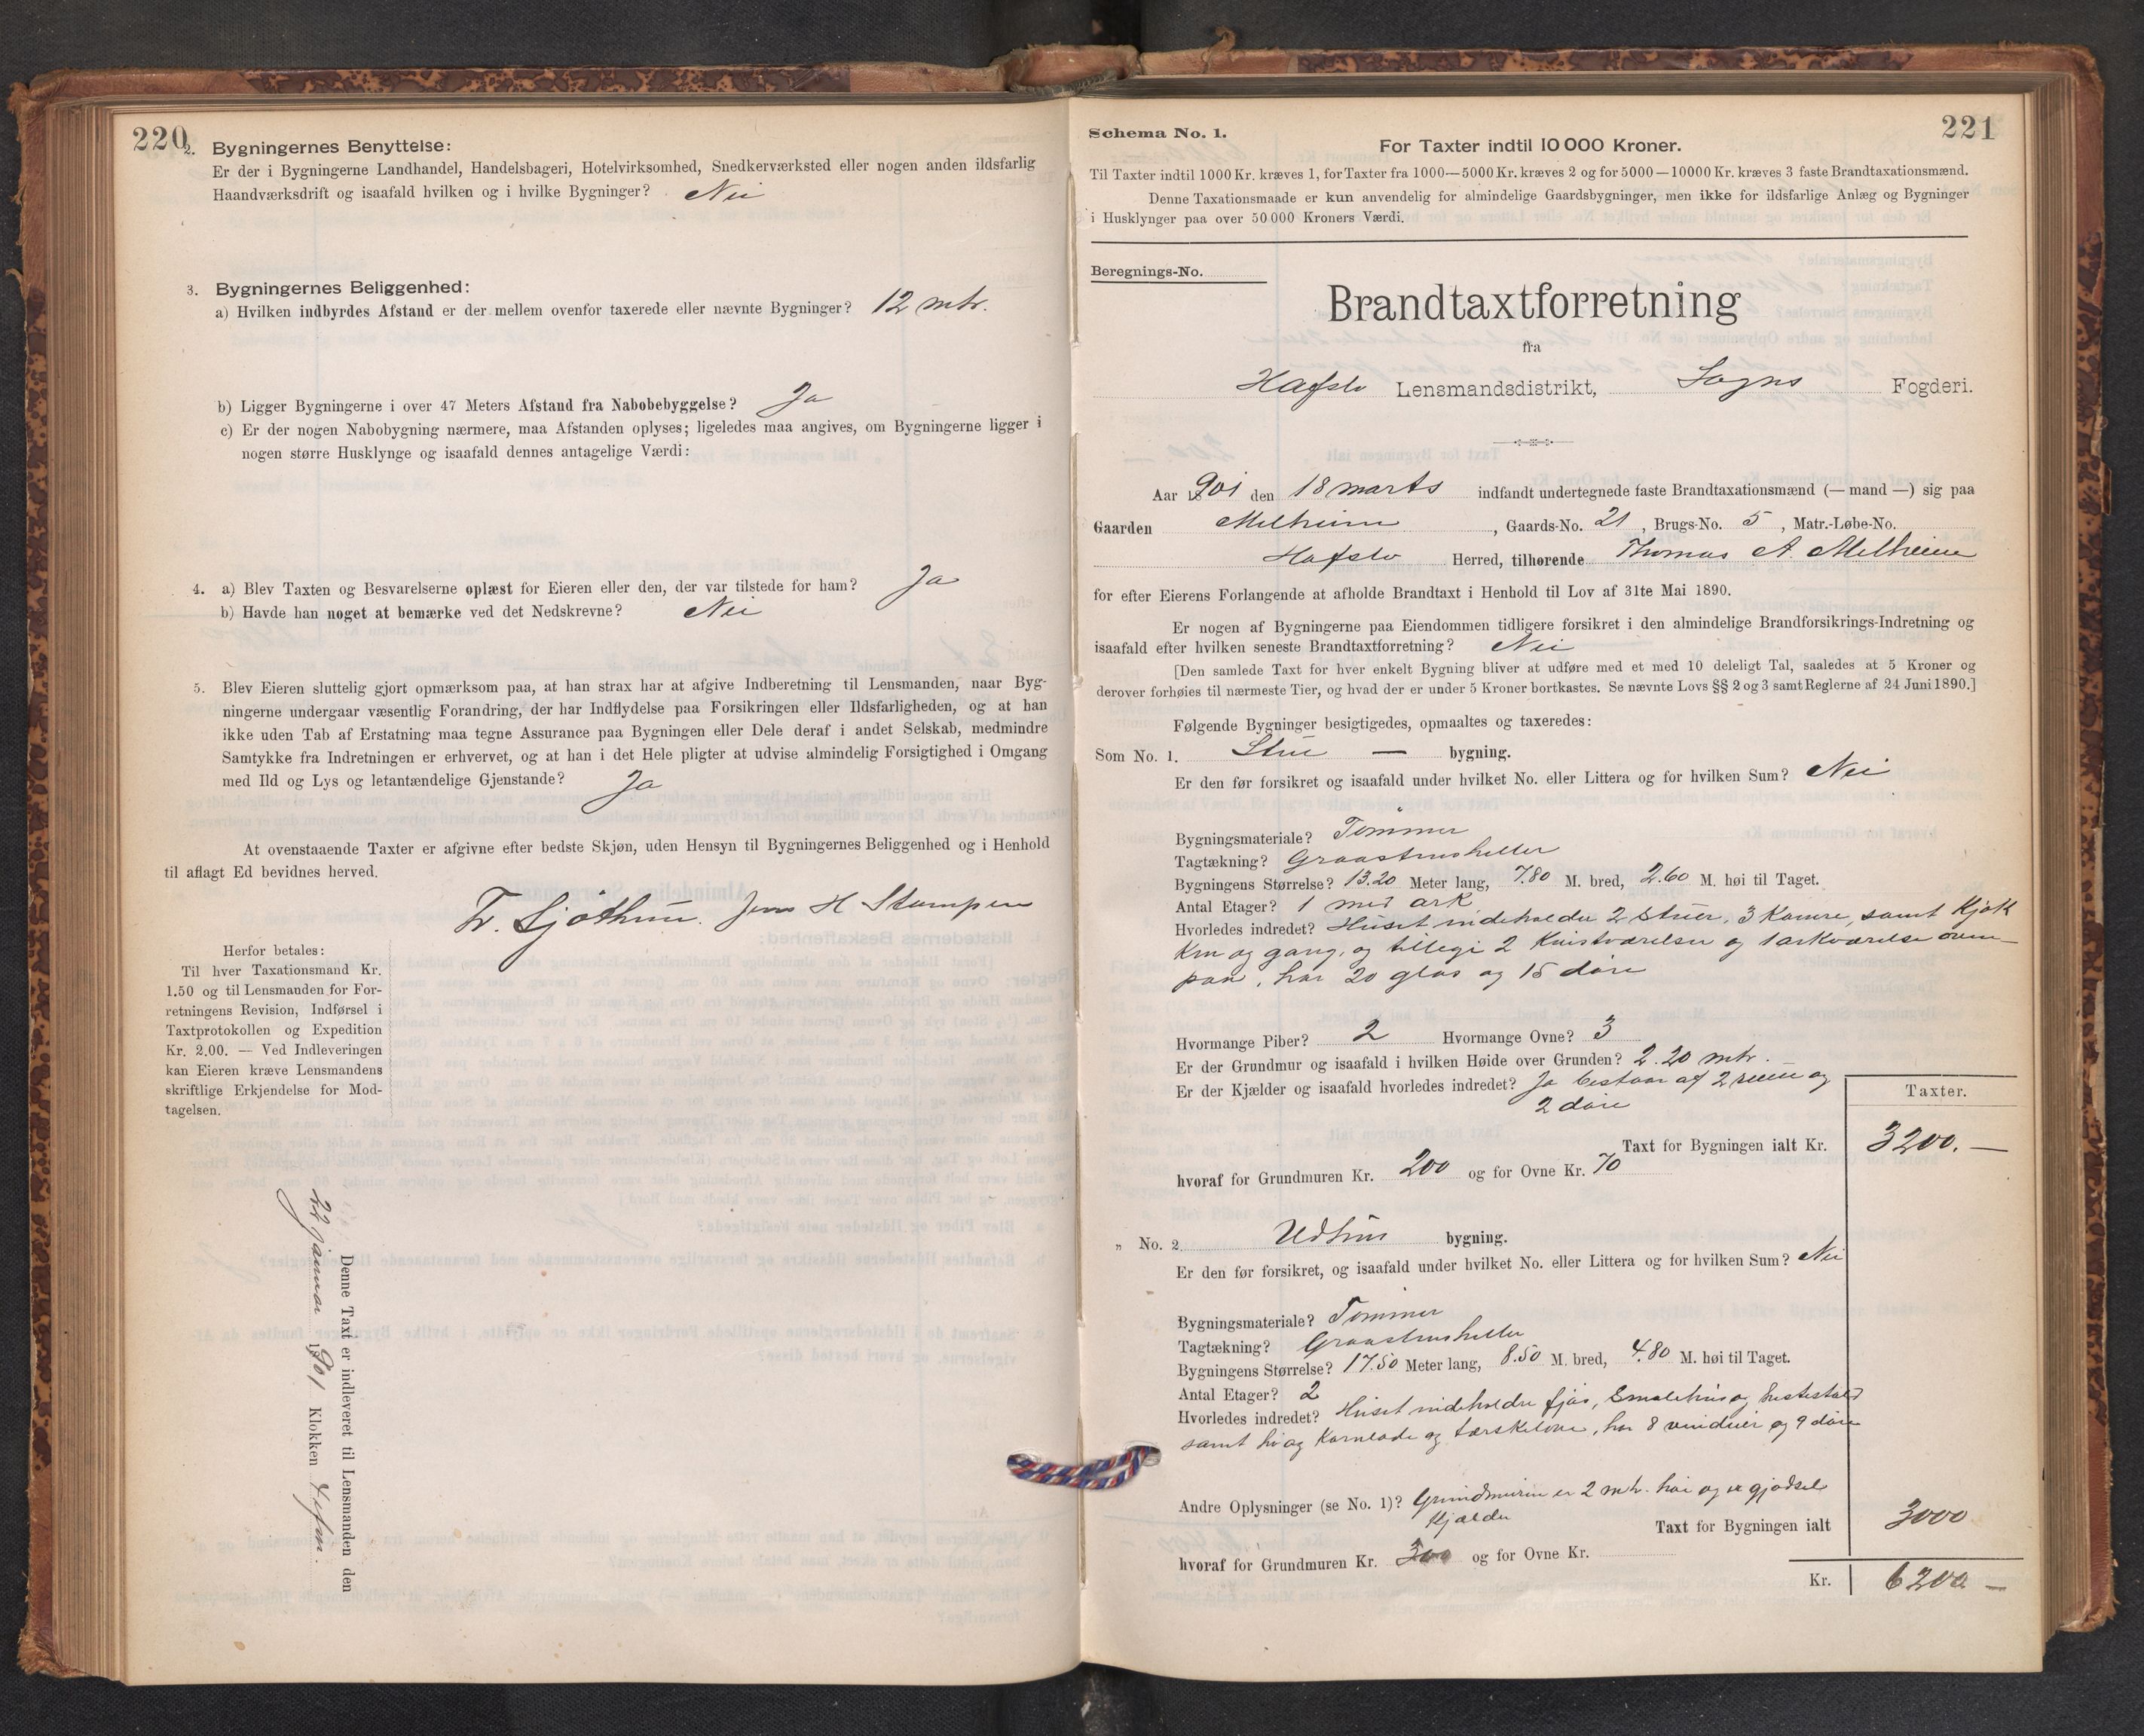 220
2. Bygningernes Benyttelse:
Er der i Bygningerne Landhandel, Handelsbageri, Hotelvirksomhed, Snedkerværksted eller nogen anden ildsfarlig
Haandværksdrift og isaafald hvilken og i hvilke Bygninger? Nei
3. Bygningernes Beliggenhed:
a) Hvilken indbyrdes Afstand er der mellem ovenfor taxerede eller nævnte Bygninger? 12 mtr.
b) Ligger Bygningerne i over 47 Meters Afstand fra Nabobebyggelse? Ja
c) Er der nogen Nabobygning nærmere, maa Afstanden oplyses; ligeledes maa angives, om Bygningerne ligger i
nogen større Husklynge og isaafald dennes antagelige Værdi:
4. a) Blev Taxten og Besvarelserne oplæst for Eieren eller den, der var tilstede for ham? Ja
b) Havde han noget at bemærke ved det Nedskrevne? Nei
5. Blev Eieren sluttelig gjort opmærksom paa, at han strax har at afgive Indberetning til Lensmanden, naar Byg-
ningerne undergaar væsentlig Forandring, der har Indflydelse paa Forsikringen eller Ildsfarligheden, og at han
ikke uden Tab af Erstatning maa tegne Assurance paa Bygningen eller Dele deraf i andet Selskab, medmindre
Samtykke fra Indretningen er erhvervet, og at han i det Hele pligter at udvise almindelig Forsigtighed i Omgang
med Ild og Lys og letantændelige Gjenstande? Ja
At ovenstaaende Taxter er afgivne efter bedste Skjøn, uden Hensyn til Bygningernes Beliggenhed og i Henhold
til aflagt Ed bevidnes herved.
Jens H
Herfor betales:
Til hver Taxationsmand Kr.
1.50 og til Lensmanden for For-
retningens Revision, Indførsel i
Taxtprotokollen og Expedition
Kr. 2.00. — Ved Indleveringen
kan Eieren kræve Lensmandens
skriftlige Erkjendelse for Mod-
tagelsen.
Denne Taxt er indleveret til Lensmanden den
22 januar 1901 Klokken 4
221
Schema No. 1.
For Taxter indtil 10 000 Kroner.
Til Taxter indtil 1000 Kr. kræves 1, for Taxter fra 1000—5000 Kr. kræves 2 og for 5000—10000 Kr. kræves 3 faste Brandtaxationsmænd.
Denne Taxationsmaade er kun anvendelig for almindelige Gaardsbygninger, men ikke for ildsfarlige Anlæg og Bygninger
i Husklynger paa over 50 000 Kroners Værdi.
Beregnings-No.
Brandtaxtforretning
fra
Hafslo Lensmandsdistrikt, Sogns Fogderi.
Aar 1901 den 18 marts indfandt undertegnede faste Brandtaxationsmænd (— mand —) sig paa
Gaarden Melheim, Gaards-No. 21, Brugs-No. 5, Matr.-Løbe-No.
Hafslo Herred, tilhørende Thomas A. Melheim
for efter Eierens Forlangende at afholde Brandtaxt i Henhold til Lov af 31te Mai 1890.
Er nogen af Bygningerne paa Eiendommen tidligere forsikret i den almindelige Brandforsikrings-Indretning og
isaafald efter hvilken seneste Brandtaxtforretning? Nei
[Den samlede Taxt for hver enkelt Bygning bliver at udføre med et med 10 deleligt Tal, saaledes at 5 Kroner og
derover forhøies til nærmeste Tier, og hvad der er under 5 Kroner bortkastes. Se nævnte Lovs §§ 2 og 3 samt Reglerne af 24 Juni 1890.]
Følgende Bygninger besigtigedes, opmaaltes og taxeredes:
Som No. 1. Stue — bygning.
Er den før forsikret og isaafald under hvilket No. eller Littera og for hvilken Sum? Nei
Bygningsmateriale? Tømmer
Tagtækning? Graastensheller
Bygningens Størrelse? 13.20 Meter lang, 7.80 M. bred, 2.60 M. høi til Taget.
Antal Etager? 1 med ark
Hvorledes indredet? Huset indeholder 2 stuer, 3 Kamre, samt Kjøk
ken og gang, og tillegi 2 Knistværelser og 1 arkværelse oven-
paa, har 20 glas og 15 døre
Hvormange Piber? 2 Hvormange Ovne? 3
Er der Grundmur og isaafald i hvilken Høide over Grunden? 2.20 mtr. —
Er der Kjælder og isaafald hvorledes indredet? Ja bestaar af 2 rum og
2 døre
Taxter.
Taxt for Bygningen ialt Kr. 3200.—
hvoraf for Grundmuren Kr. 200 og for Ovne Kr. 70
„ No. 2. Udhus bygning.
Er den før forsikret, og isaafald under hvilket No. eller Littera og for hvilken Sum? Nei
Bygningsmateriale? Tømmer
Tagtækning? Graastensheller
Bygningens Størrelse? 17.50 Meter lang, 8.50 M. bred, 4.80 M. høi til Taget.
Antal Etager? 2
Hvorledes indredet? Huset indeholder fjøs, Smalehus og hestestald
samt hø og Kornlade og tærskelove, har 8 vinduer og 9 døre
Andre Oplysninger (se No. 1)? Grundmuren er 2 mtr. høi og er gjødsel
kjælder
Taxt for Bygningen ialt 3000
hvoraf for Grundmuren Kr. 300 og for Ovne Kr.
Kr. 6200 —